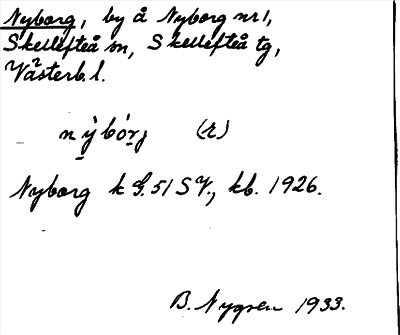 Nyborg, by å Nyborg nr 1,
Skellefteå sn, Skellefteå tg,
Västerb. l.
Nyborg k G. 51 SV, kb. 1926.
B. Nygren 1933.